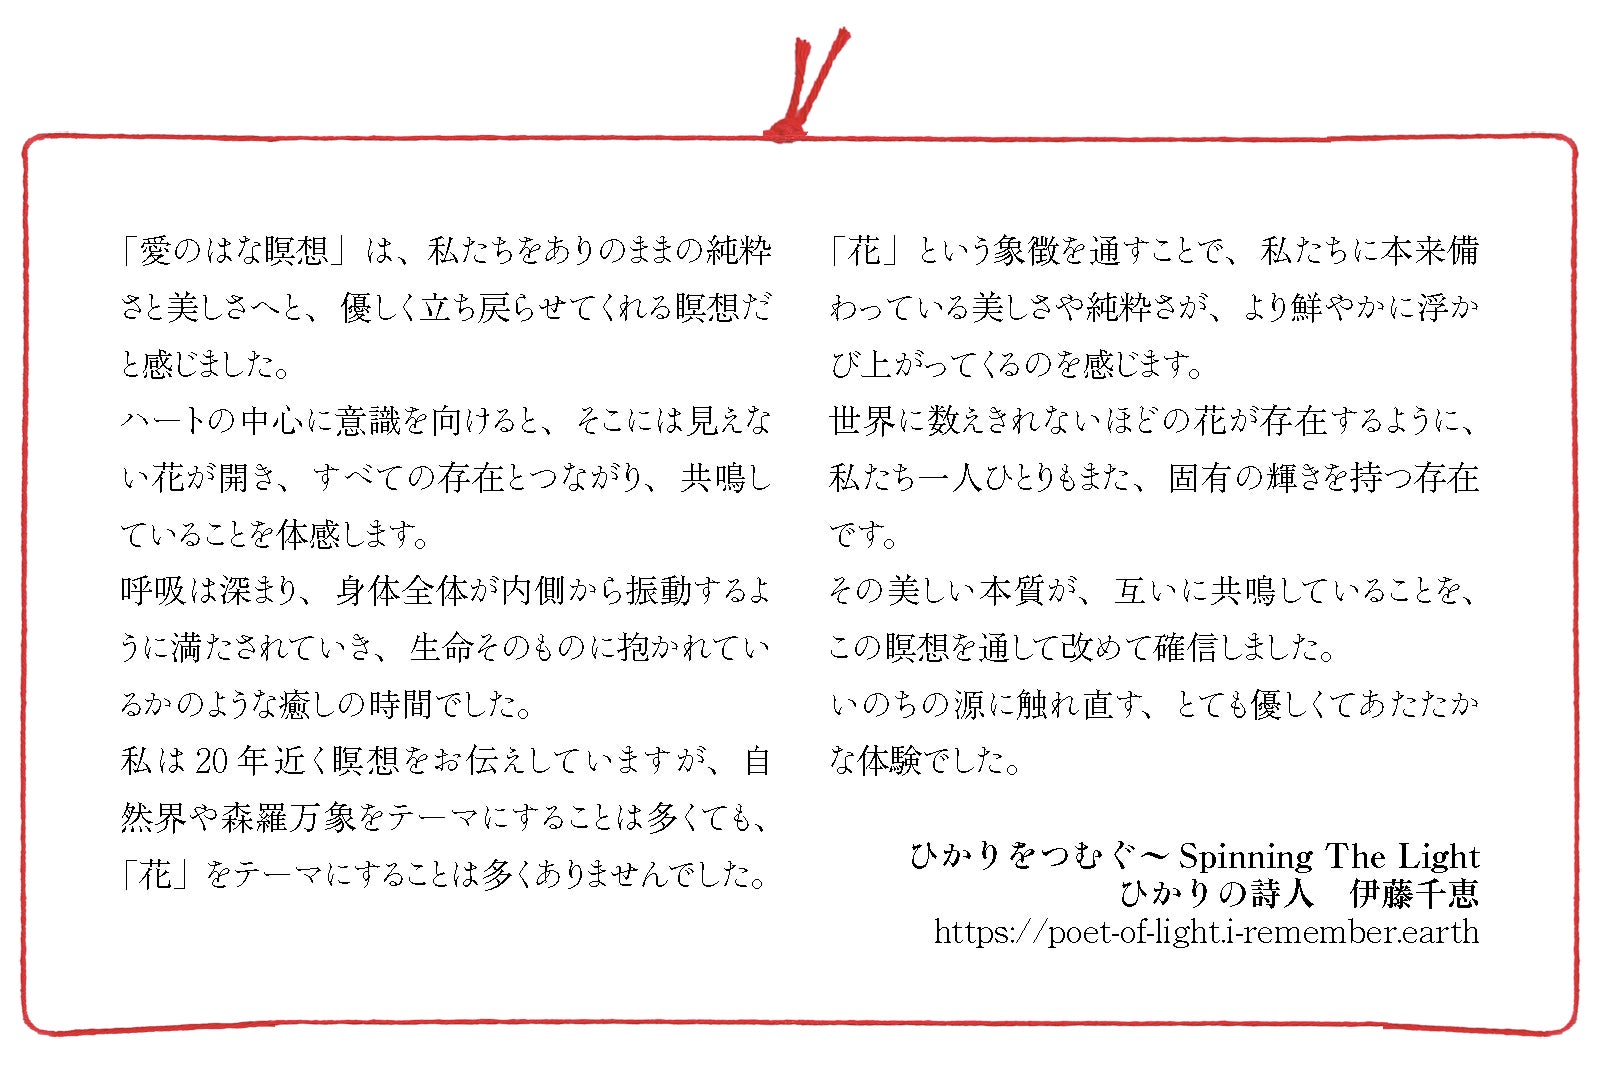 「愛のはな瞑想」は、私たちをありのままの純粋
さと美しさへと、優しく立ち戻らせてくれる瞑想だ
と感じました。
ハートの中心に意識を向けると、そこには見えな
い花が開き、すべての存在とつながり、共鳴し
ていることを体感します。
呼吸は深まり、身体全体が内側から振動するよ
うに満たされていき、生命そのものに抱かれてい
るかのような癒しの時間でした。
私は20年近く瞑想をお伝えしていますが、自
然界や森羅万象をテーマにすることは多くても、
「花」をテーマにすることは多くありませんでした。
「花」という象徴を通すことで、私たちに本来備
わっている美しさや純粋さが、より鮮やかに浮か
び上がってくるのを感じます。
世界に数えきれないほどの花が存在するように、
私たち一人ひとりもまた、固有の輝きを持つ存在
です。
その美しい本質が、互いに共鳴していることを、
この瞑想を通して改めて確信しました。
いのちの源に触れ直す、とても優しくてあたたか
な体験でした。
ひかりをつむぐ～Spinning The Light
ひかりの詩人　伊藤千恵
https://poet-of-light.i-remember.earth